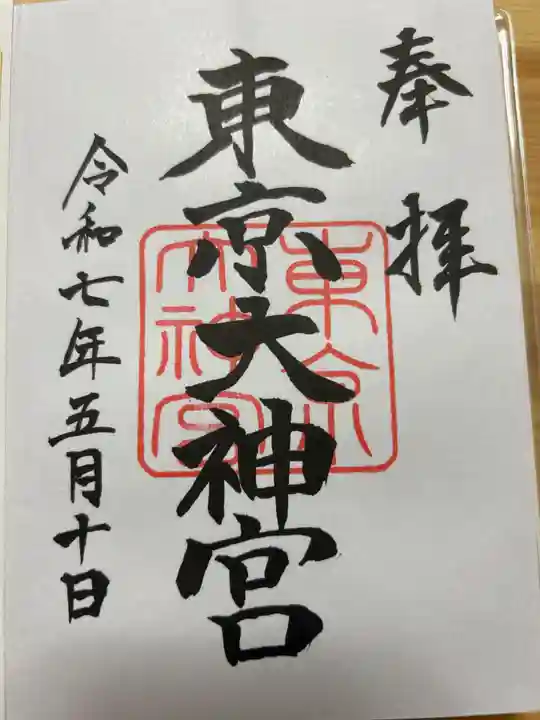 奉拝
東京大神宮
東京大神宮
令和七年五月十日